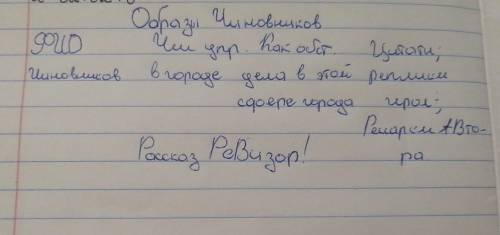 Образы Чиновников
ФИО Чем упр. Как обст. Цитаты;
Чиновников в городе дела в этой реплики
сфере города героя;
Ремарки АВто-
Рассказ РеВизор! ра